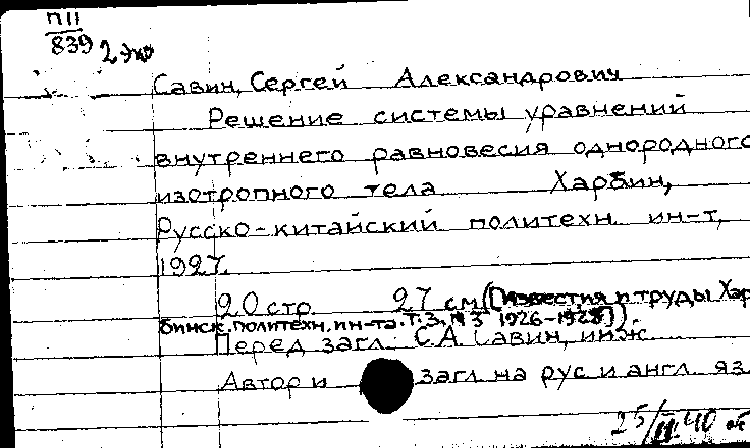 П II
839 2 экз
Савин, Сергей Александрович
Решение системы уравнений
внутреннего равновесия однородного
изотропного тела Харбин,
Русско-китайский политехн. ин-т,
1927.
20 стр. 27 см ([Известия и труды Хар
бинск. политехн. ин-та. Т. 3, № 3 1926-1928]).
Перед загл. С.А. Савин, инж.
Автор и загл. на рус и англ. яз
25/II.40